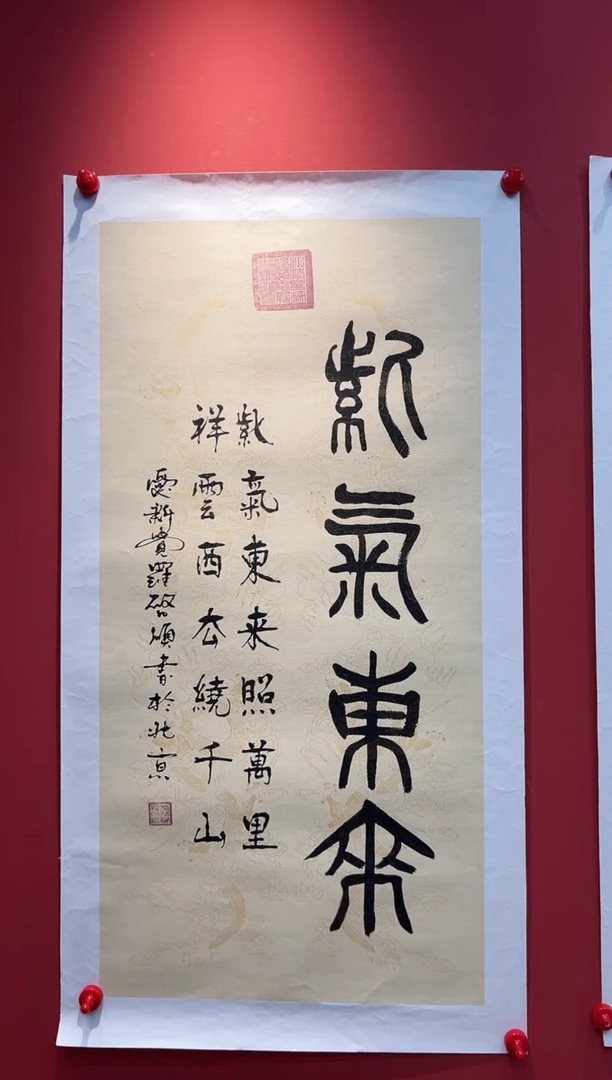 紫氣東來
紫氣東来照萬里
祥雲西去繞千山
愛新覺羅啓頏書於北京